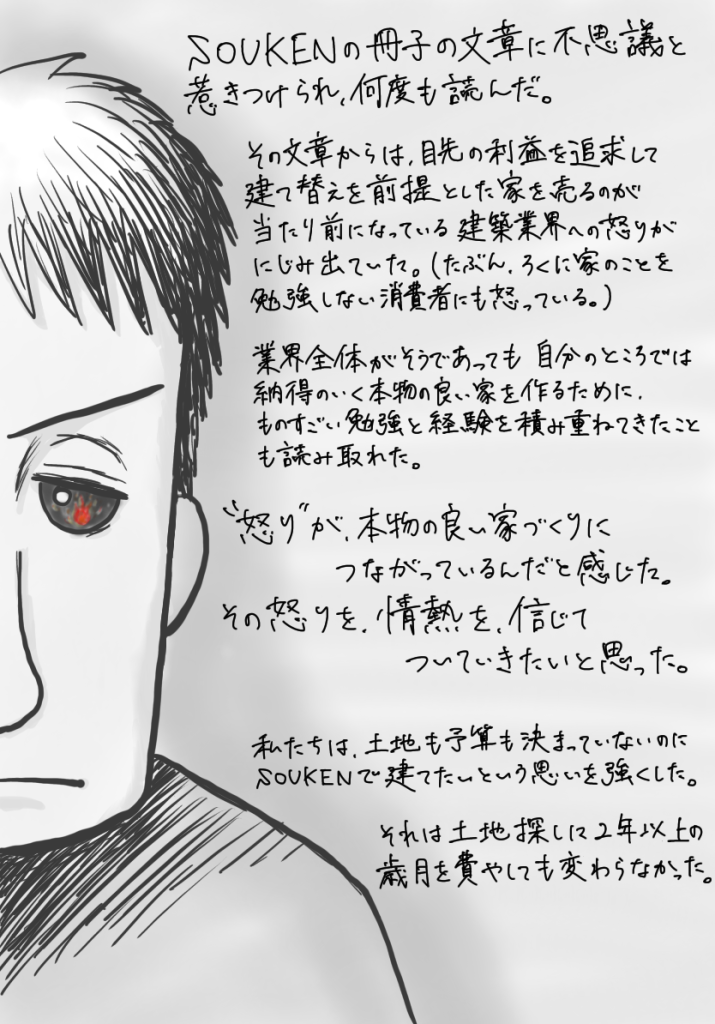 SOUKENの冊子の文章に不思議と
惹きつけられ、何度も読んだ。
その文章からは、目先の利益を追求して
建て替えを前提とした家を売るのが
当たり前になっている建築業界への怒りが
にじみ出ていた。(たぶん、ろくに家のことを
勉強しない消費者にも怒っている。)
業界全体がそうであっても 自分のところでは
納得のいく本物の良い家を作るために、
ものすごい勉強と経験を積み重ねてきたこと
も読み取れた。
“怒り”が、本物の良い家づくりに
つながっているんだと感じた。
その怒りを、情熱を、信じて
ついていきたいと思った。
私たちは、土地も予算も決まっていないのに
SOUKENで建てたいという思いを強くした。
それは土地探しに2年以上の
歳月を費やしても変わらなかった。